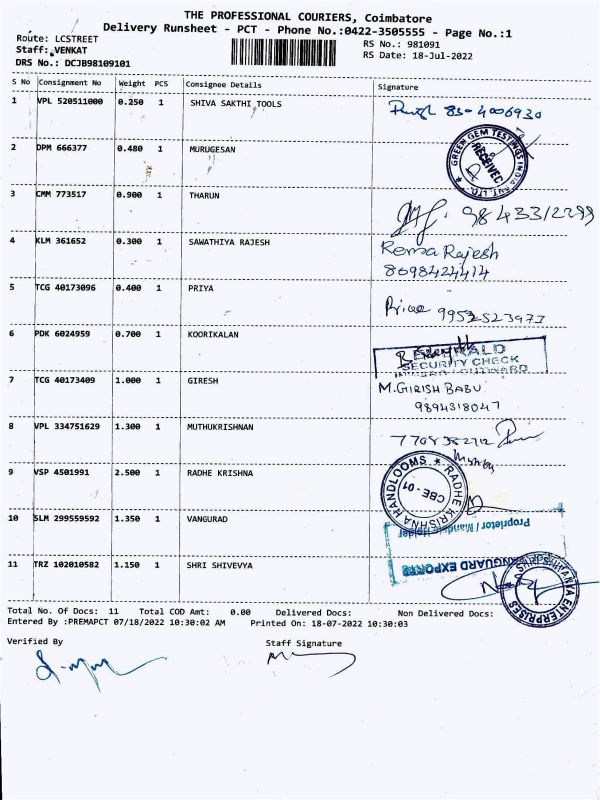 THE PROFESSIONAL COURIERS, Coimbatore
Delivery Runsheet - PCT - Phone No.:0422-3505555 - Page No.:1
Route: LCSTREET
RS No.: 981091
Staff: VENKAT
RS Date: 18-Jul-2022
DRS No.: DCJB98109101
S No Consignment No Weight PCS Consignee Details Signature
1 VPL 520511000 0.250 1 SHIVA SAKTHI TOOLS 83-4006930
2 DPM 666377 0.480 1 MURUGESAN
GREEN GEM TESTINGS INDIA PVT. LTD.
RECEIVED
3 CMM 773517 0.900 1 THARUN
9843312299
4 KLM 361652 0.300 1 SAWATHIYA RAJESH Rema Rajesh
8098424414
5 TCG 40173096 0.400 1 PRIYA
6 PDK 6024959 0.700 1 KOORIKALAN
EMERALD
SECURITY CHECK
7 TCG 40173409 1.000 1 GIRESH M. GIRISH BABU
9894318047
8 VPL 334751629 1.300 1 MUTHUKRISHNAN
9 VSP 4501991 2.500 1 RADHE KRISHNA
RADHE KRISHNA HANDLOOMS
CBE - 01
10 SLM 299559592 1.350 1 VANGURAD
Proprietor / Mandate Holder
VANGUARD EXPORTS
11 TRZ 102010582 1.150 1 SHRI SHIVEVYA
ENTERPRISES
Total No. Of Docs: 11 Total COD Amt: 0.00 Delivered Docs: Non Delivered Docs:
Entered By :PREMAPCT 07/18/2022 10:30:02 AM Printed On: 18-07-2022 10:30:03
Verified By Staff Signature